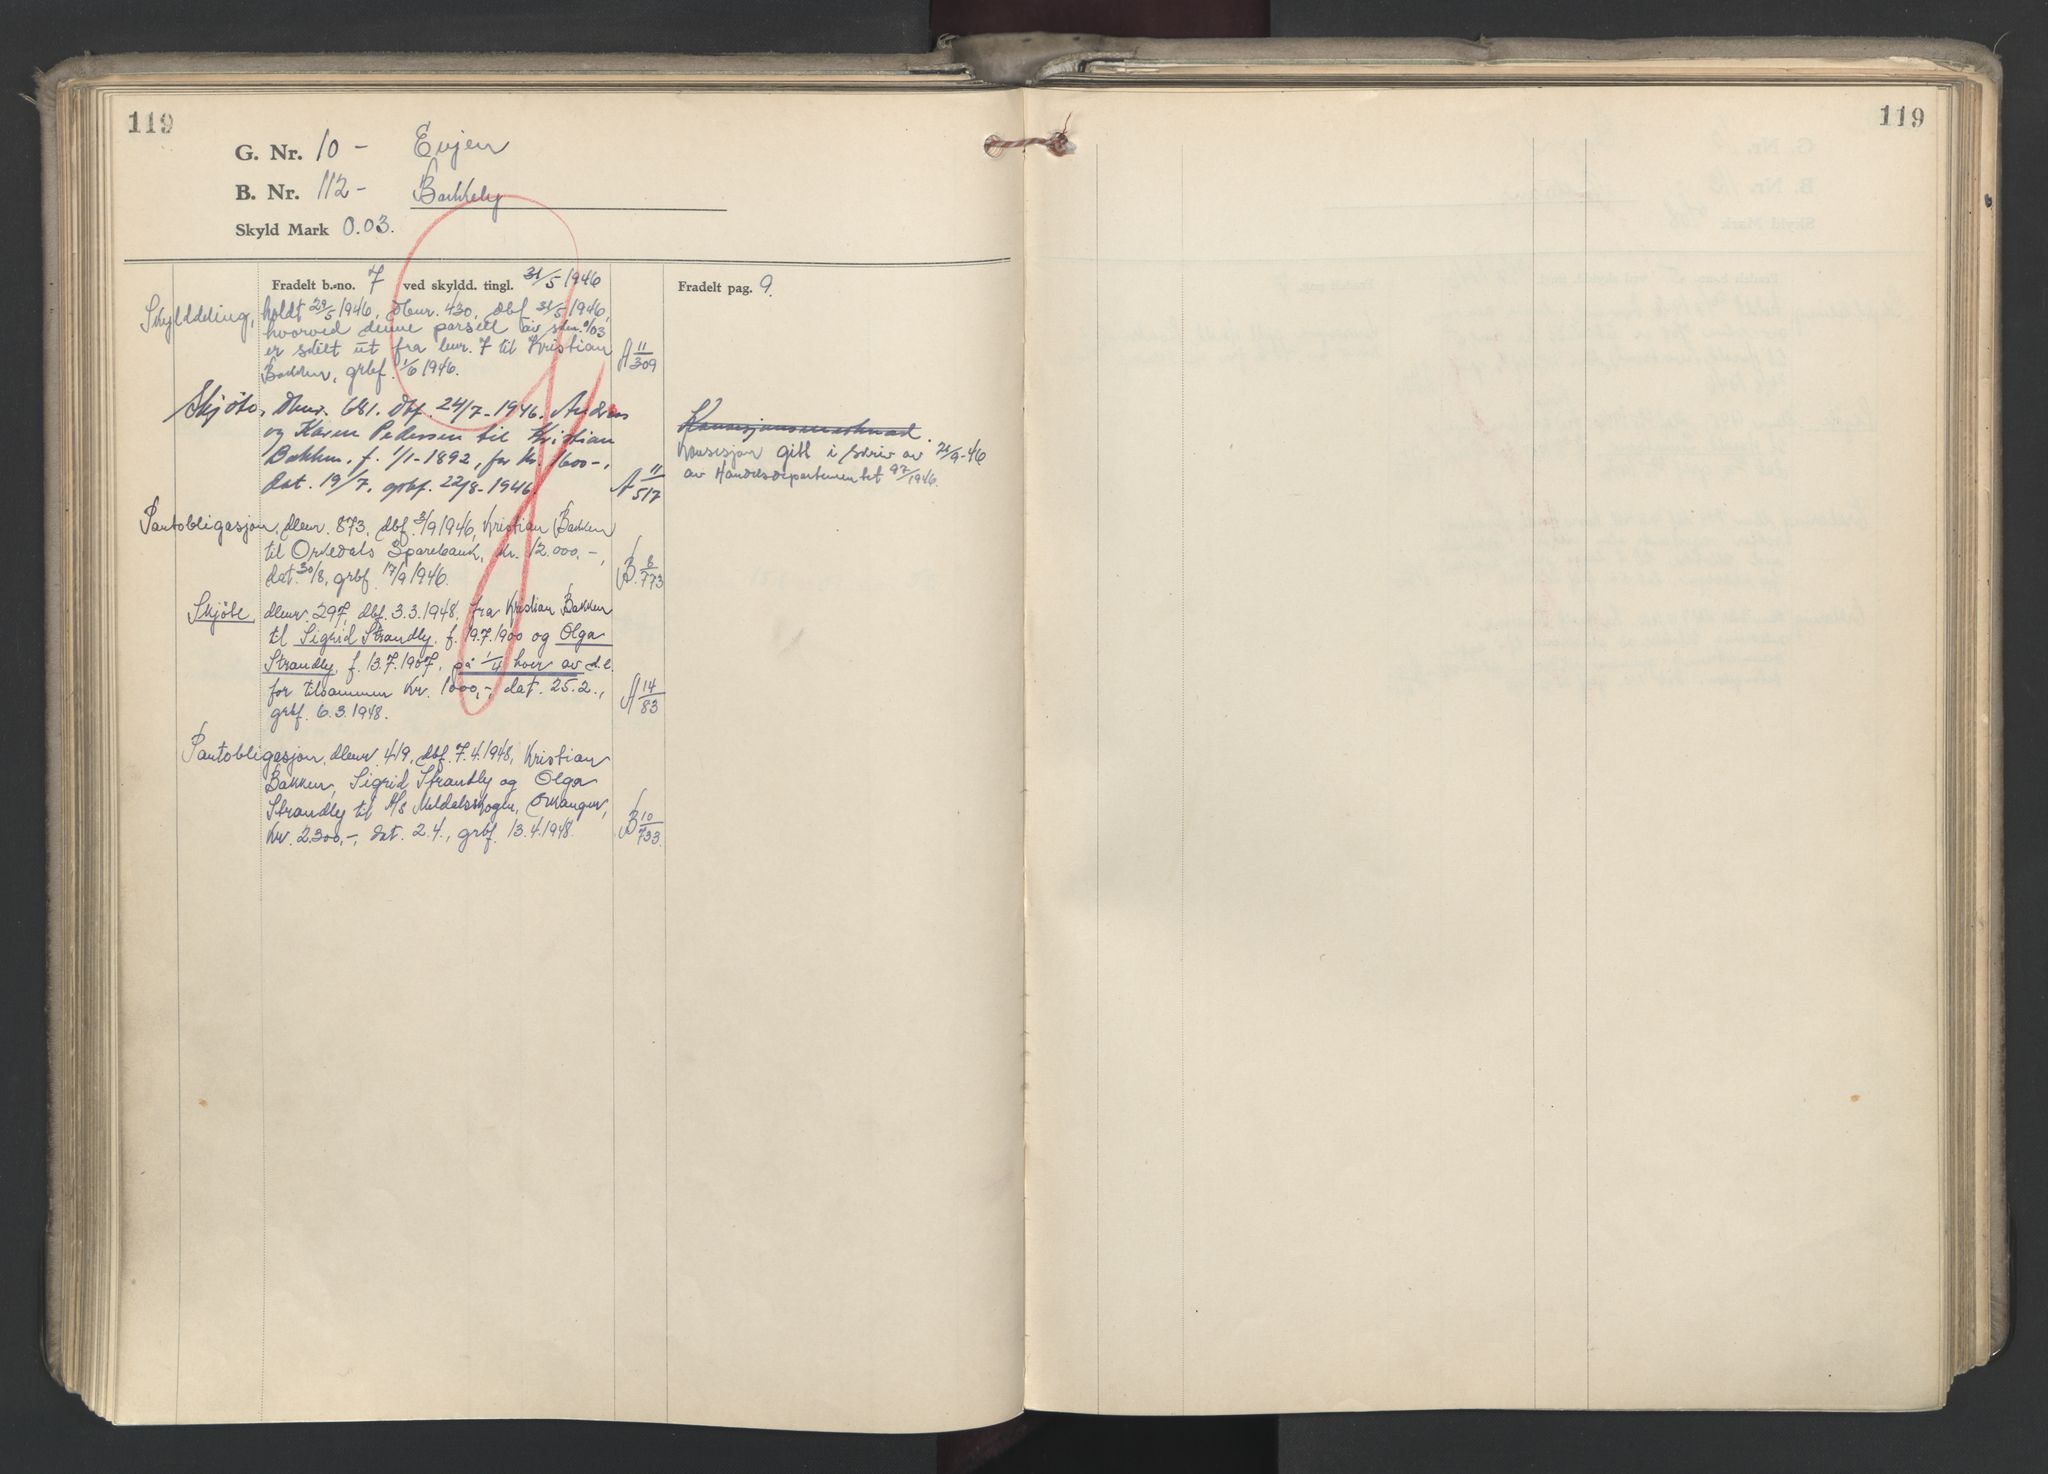 119
119
G. Nr. 10 - Evjen
B. Nr. 112 - Bakkely
Skyld Mark 0.03.
Fradelt b.-no. 7 ved skyldd. tingl. 31/5 1946
Fradelt pag. 9.
Skylddeling, holdt 29/5 1946, dbnr. 430, dbf 31/5 1946,
hvorved denne parsell av skm. 0/03
er skilt ut fra bnr. 7 til Kristian
Bakken, grbf. 1/6 1946. A 11/309
Skjöte, dbnr. 681. dbf. 24/7-1946. Andreas
og Karen Pedersen til Kristian
Bakken, f. 1/1-1892, for kr. 1600-,
dat. 19/7, grbf. 22/8-1946. A 11/517
Konsesjon gitt i skriv av 21/9-46
av Handelsdepartementet
Pantobligasjon, dbnr. 873, dbf. 3/9 1946, Kristian Bakken
til Orkedals Sparebank, kr. 12.000,-,
dat. 30/8, grbf. 17/9 1946. B. 8/773
Skjöte, dbnr. 297, dbf. 3.3.1948, fra Kristian Bakken
til Sigrid Strandly, f. 19.7.1900 og Olga
Strandly, f. 13.7.1907, på 1/4 hver av d.e.
for tilsammen kr. 1000,-, dat. 25.2.,
grbf. 6.3.1948. A 14/83
Pantobligasjon, dbnr. 419, dbf. 7.4.1948, Kristian
Bakken, Sigrid Strandly og Olga
Strandly til A/s Meldalskogen, Orkanger,
kr. 2.300,-, dat. 2.4., grbf. 13.4.1948. B 10/733.